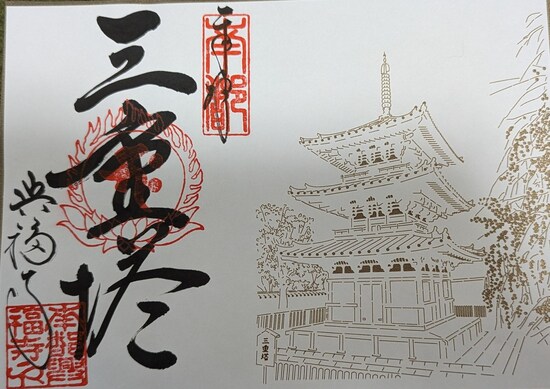 奉拝
南都
三重塔
興福寺
南都興
三重塔